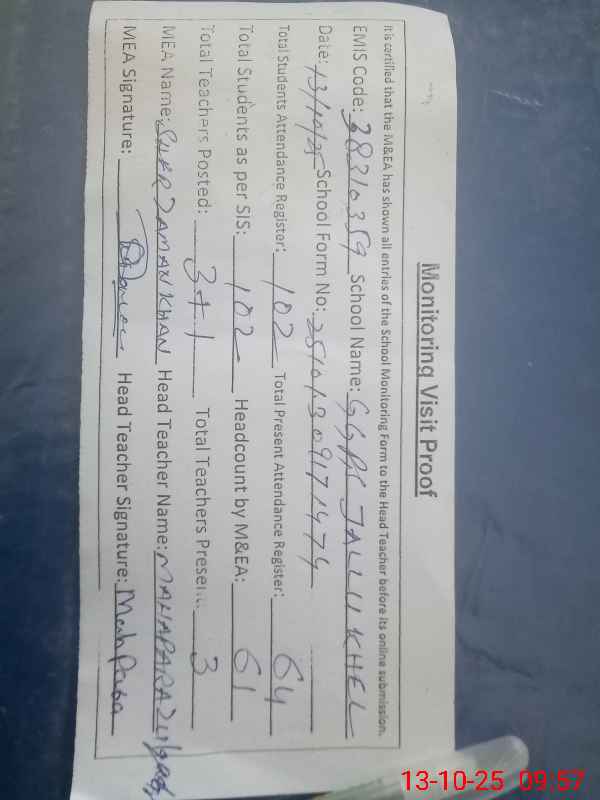 Monitoring Visit Proof
It is certified that the M&EA has shown all entries of the School Monitoring Form to the Head Teacher before its online submission.
EMIS Code: 38310359 School Name: GGPS JALLU KHEL
Date: 13/10/25 School Form No: 25101309171474
Total Students Attendance Register: 102 Total Present Attendance Register: 64
Total Students as per SIS: 102 Headcount by M&EA: 61
Total Teachers Posted: 3+1 Total Teachers Present: 3
MEA Name: SHER ZAMAN KHAN Head Teacher Name: MAHAPARA
MEA Signature: Head Teacher Signature: Mah Para
13-10-25 09:57